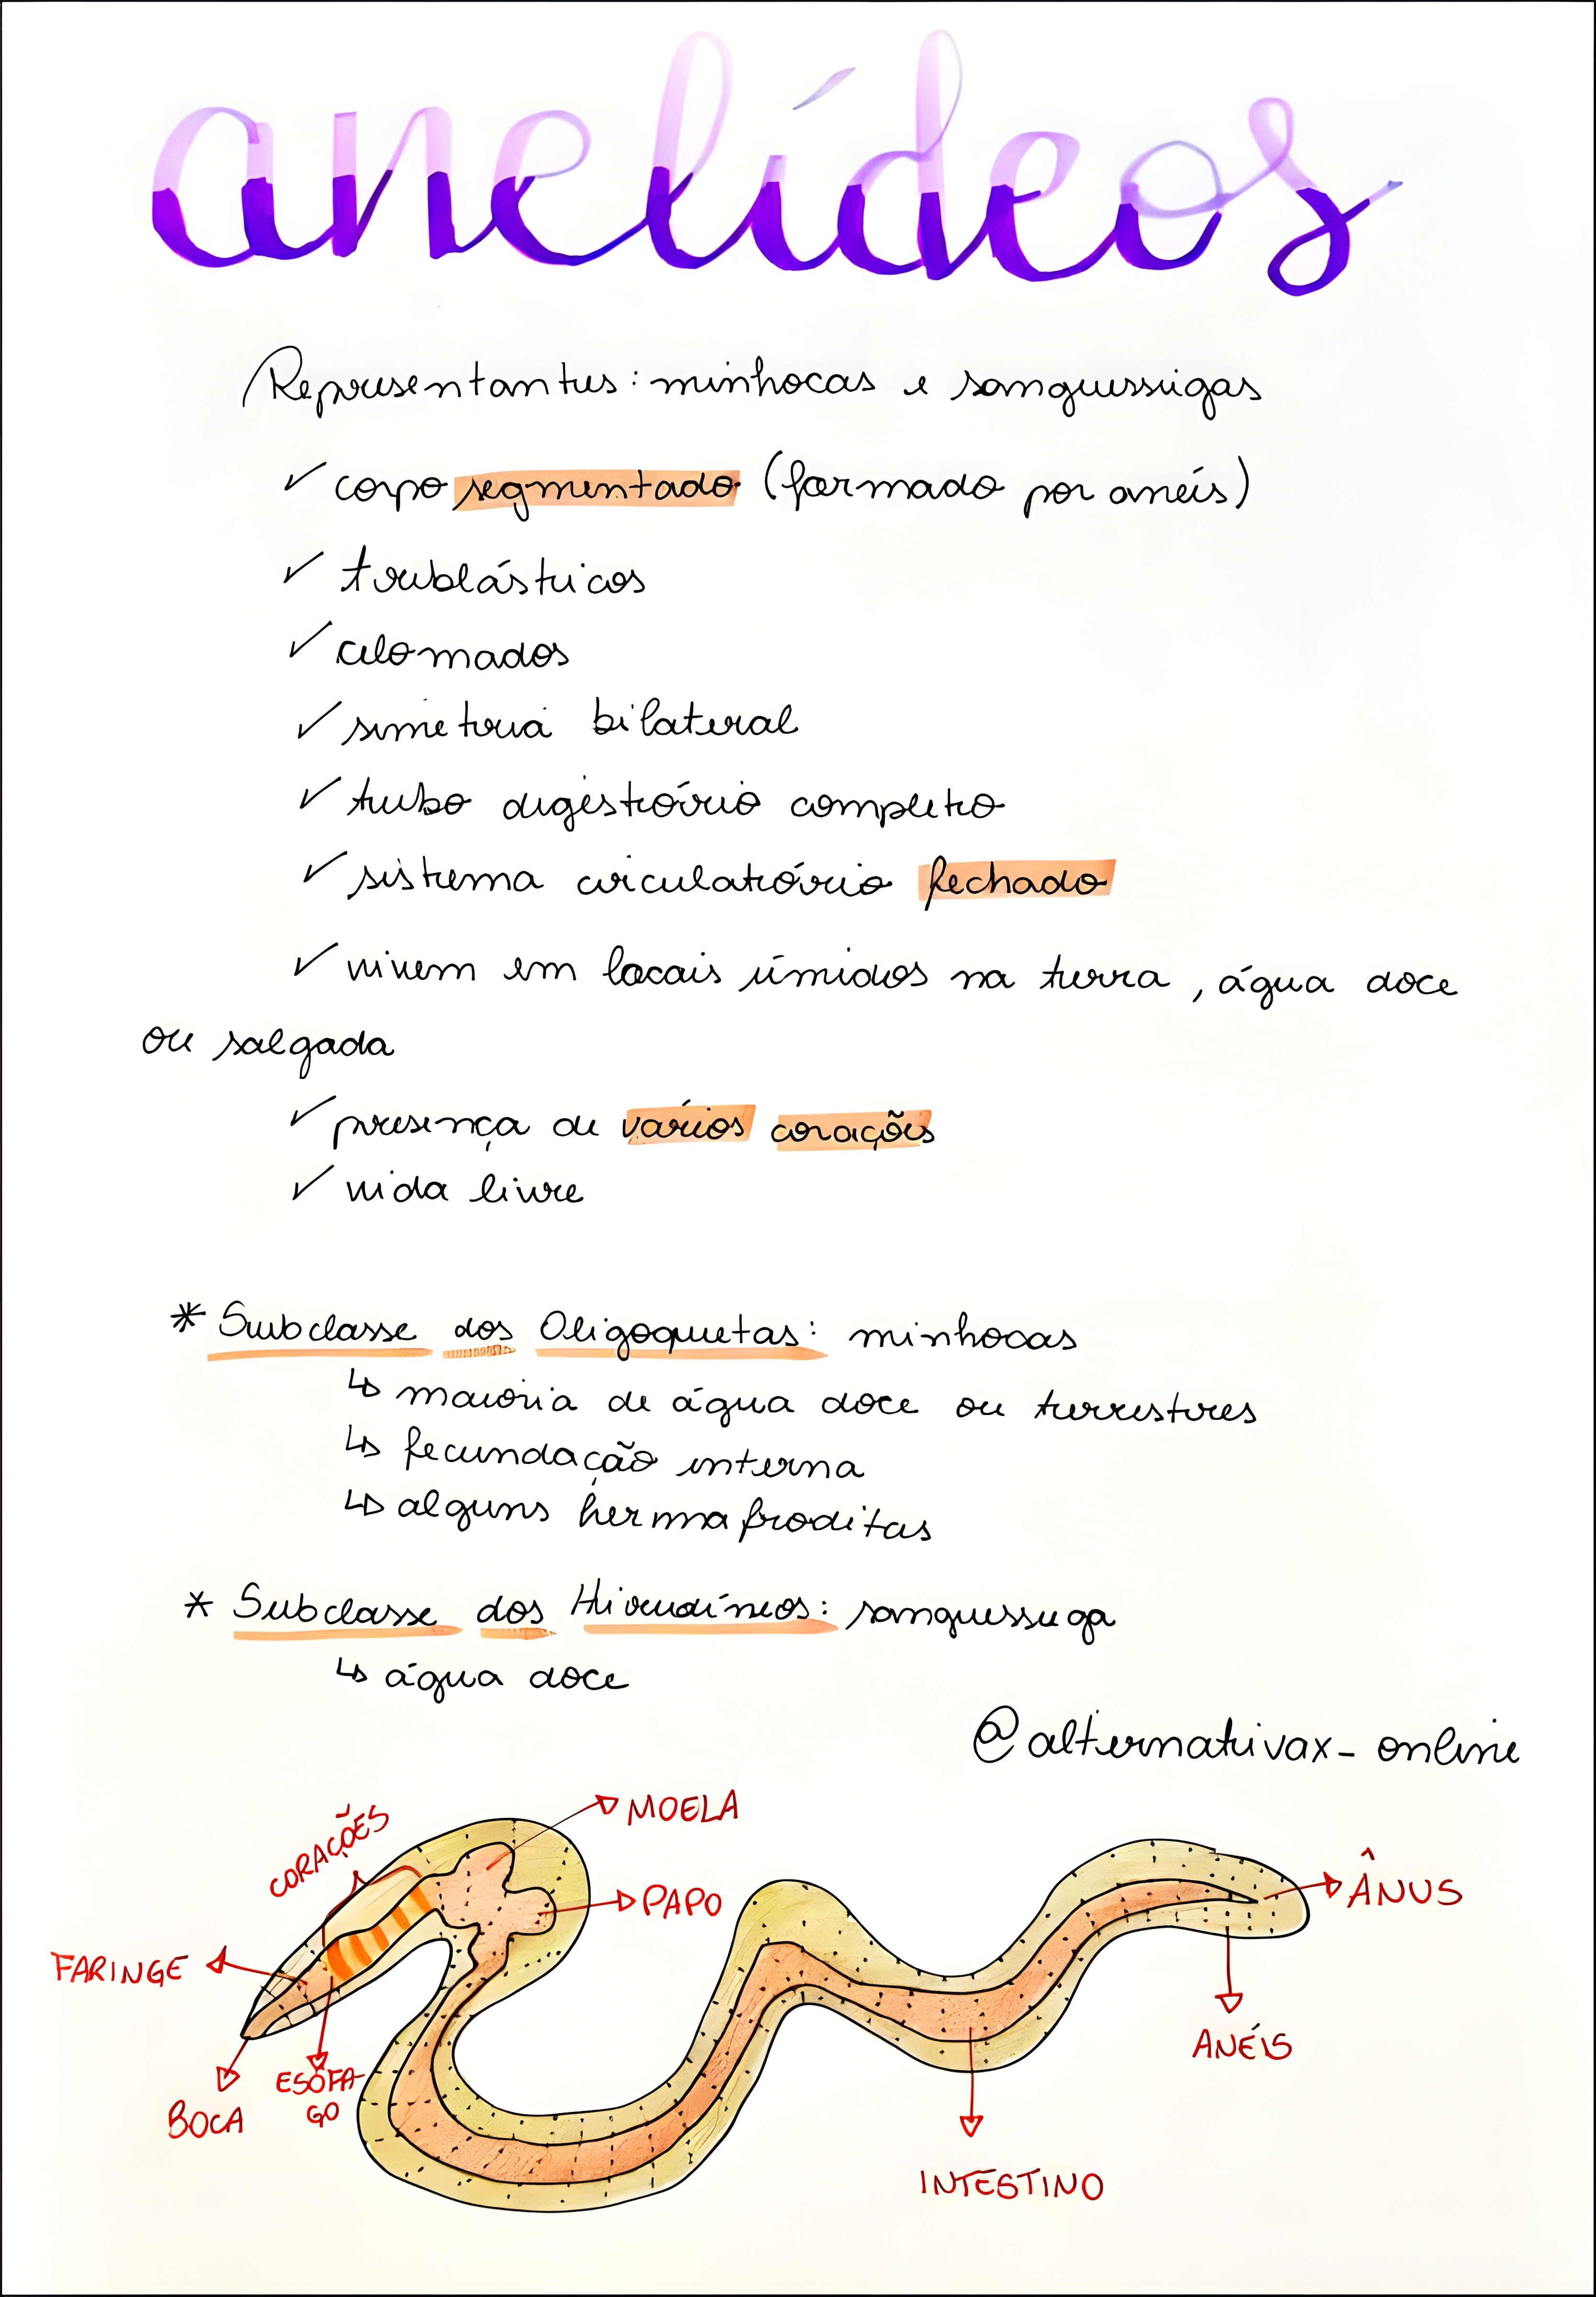 anelídeos
Representantes: minhocas e sanguessugas
✓ corpo segmentado (formado por anéis)
✓ triblásticos
✓ celomados
✓ simetria bilateral
✓ tubo digestório completo
✓ sistema circulatório fechado
✓ vivem em locais úmidos na terra, água doce
ou salgada
✓ presença de vários corações
✓ vida livre
* Subclasse dos Oligoquetas: minhocas
↳ maioria de água doce ou terrestres
↳ fecundação interna
↳ alguns hermafroditas
* Subclasse dos Hirudíneos: sanguessuga
↳ água doce
@alternativax_online
MOELA
CORAÇÕES
PAPO
ÂNUS
FARINGE
ANÉIS
ESÔFA-
GO
BOCA
INTESTINO